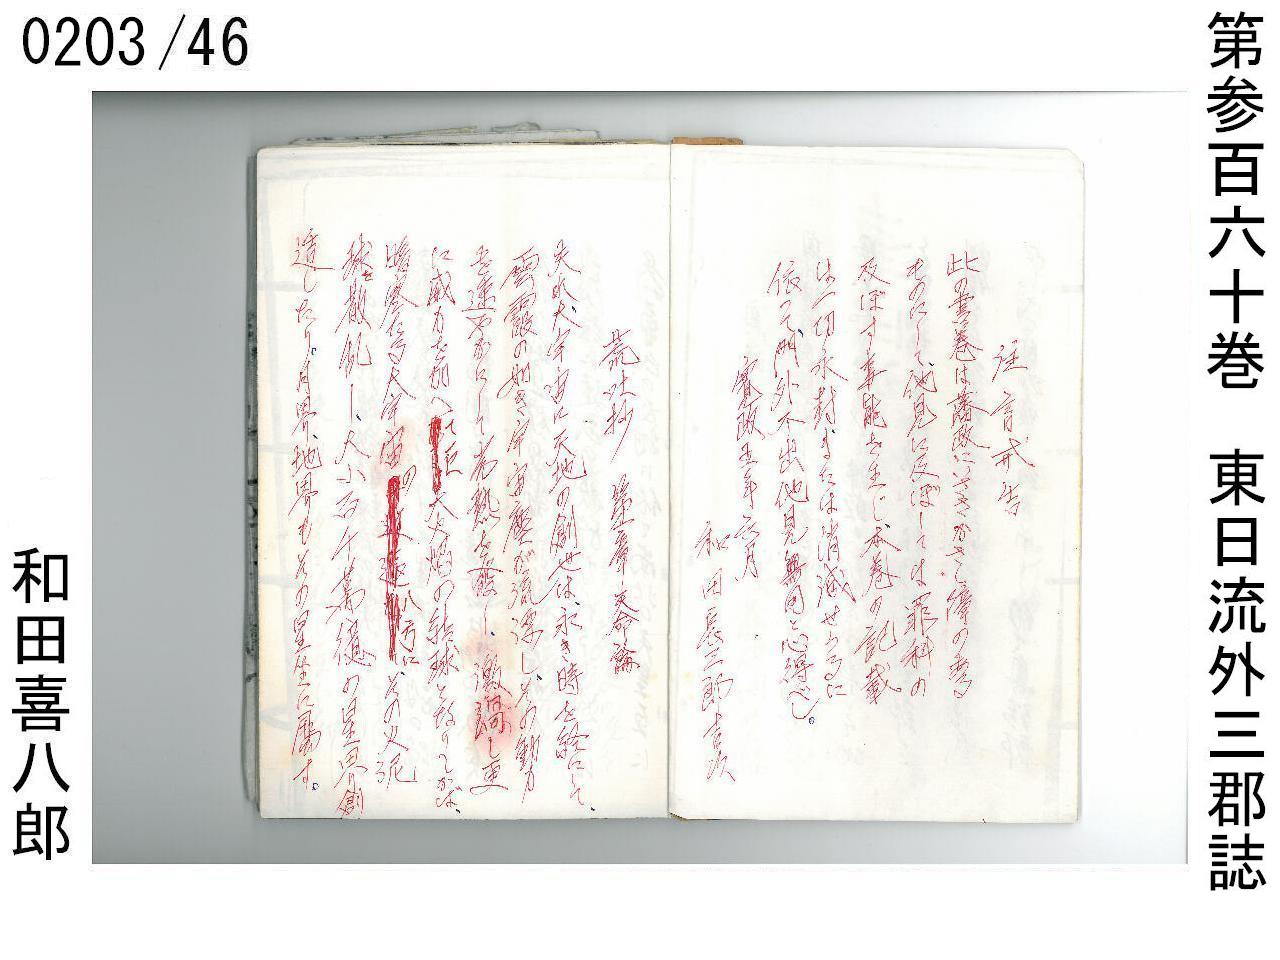 0203/46
第参百六十巻 東日流外三郡誌
注言戒告
此の書巻は藩政にさきかさて障の考る
ものにして、他見に及ぼしては罪科の
及ぼす事能を生じ本巻の記載
は一切永封または消滅せらるに
依って門外不出他見無用と心得べし。
寛政五年六月
和田長三郎吉次
荒吐抄 第壱章 天命論
夫れ大宇宙に天地の創世は、永き時を経にして、
雲霞の如き宇宙塵が流浮し、その動力
を速やかにして光熱を発し、激渦し更
に威力を加へて巨大火焔の転球と成りてしかば、
暗黒たる大宇宙の八方に、その火泥
球を散乱し、大小百千万億の星界創
造したり。月界、地界もその星生に属す。
和田喜八郎